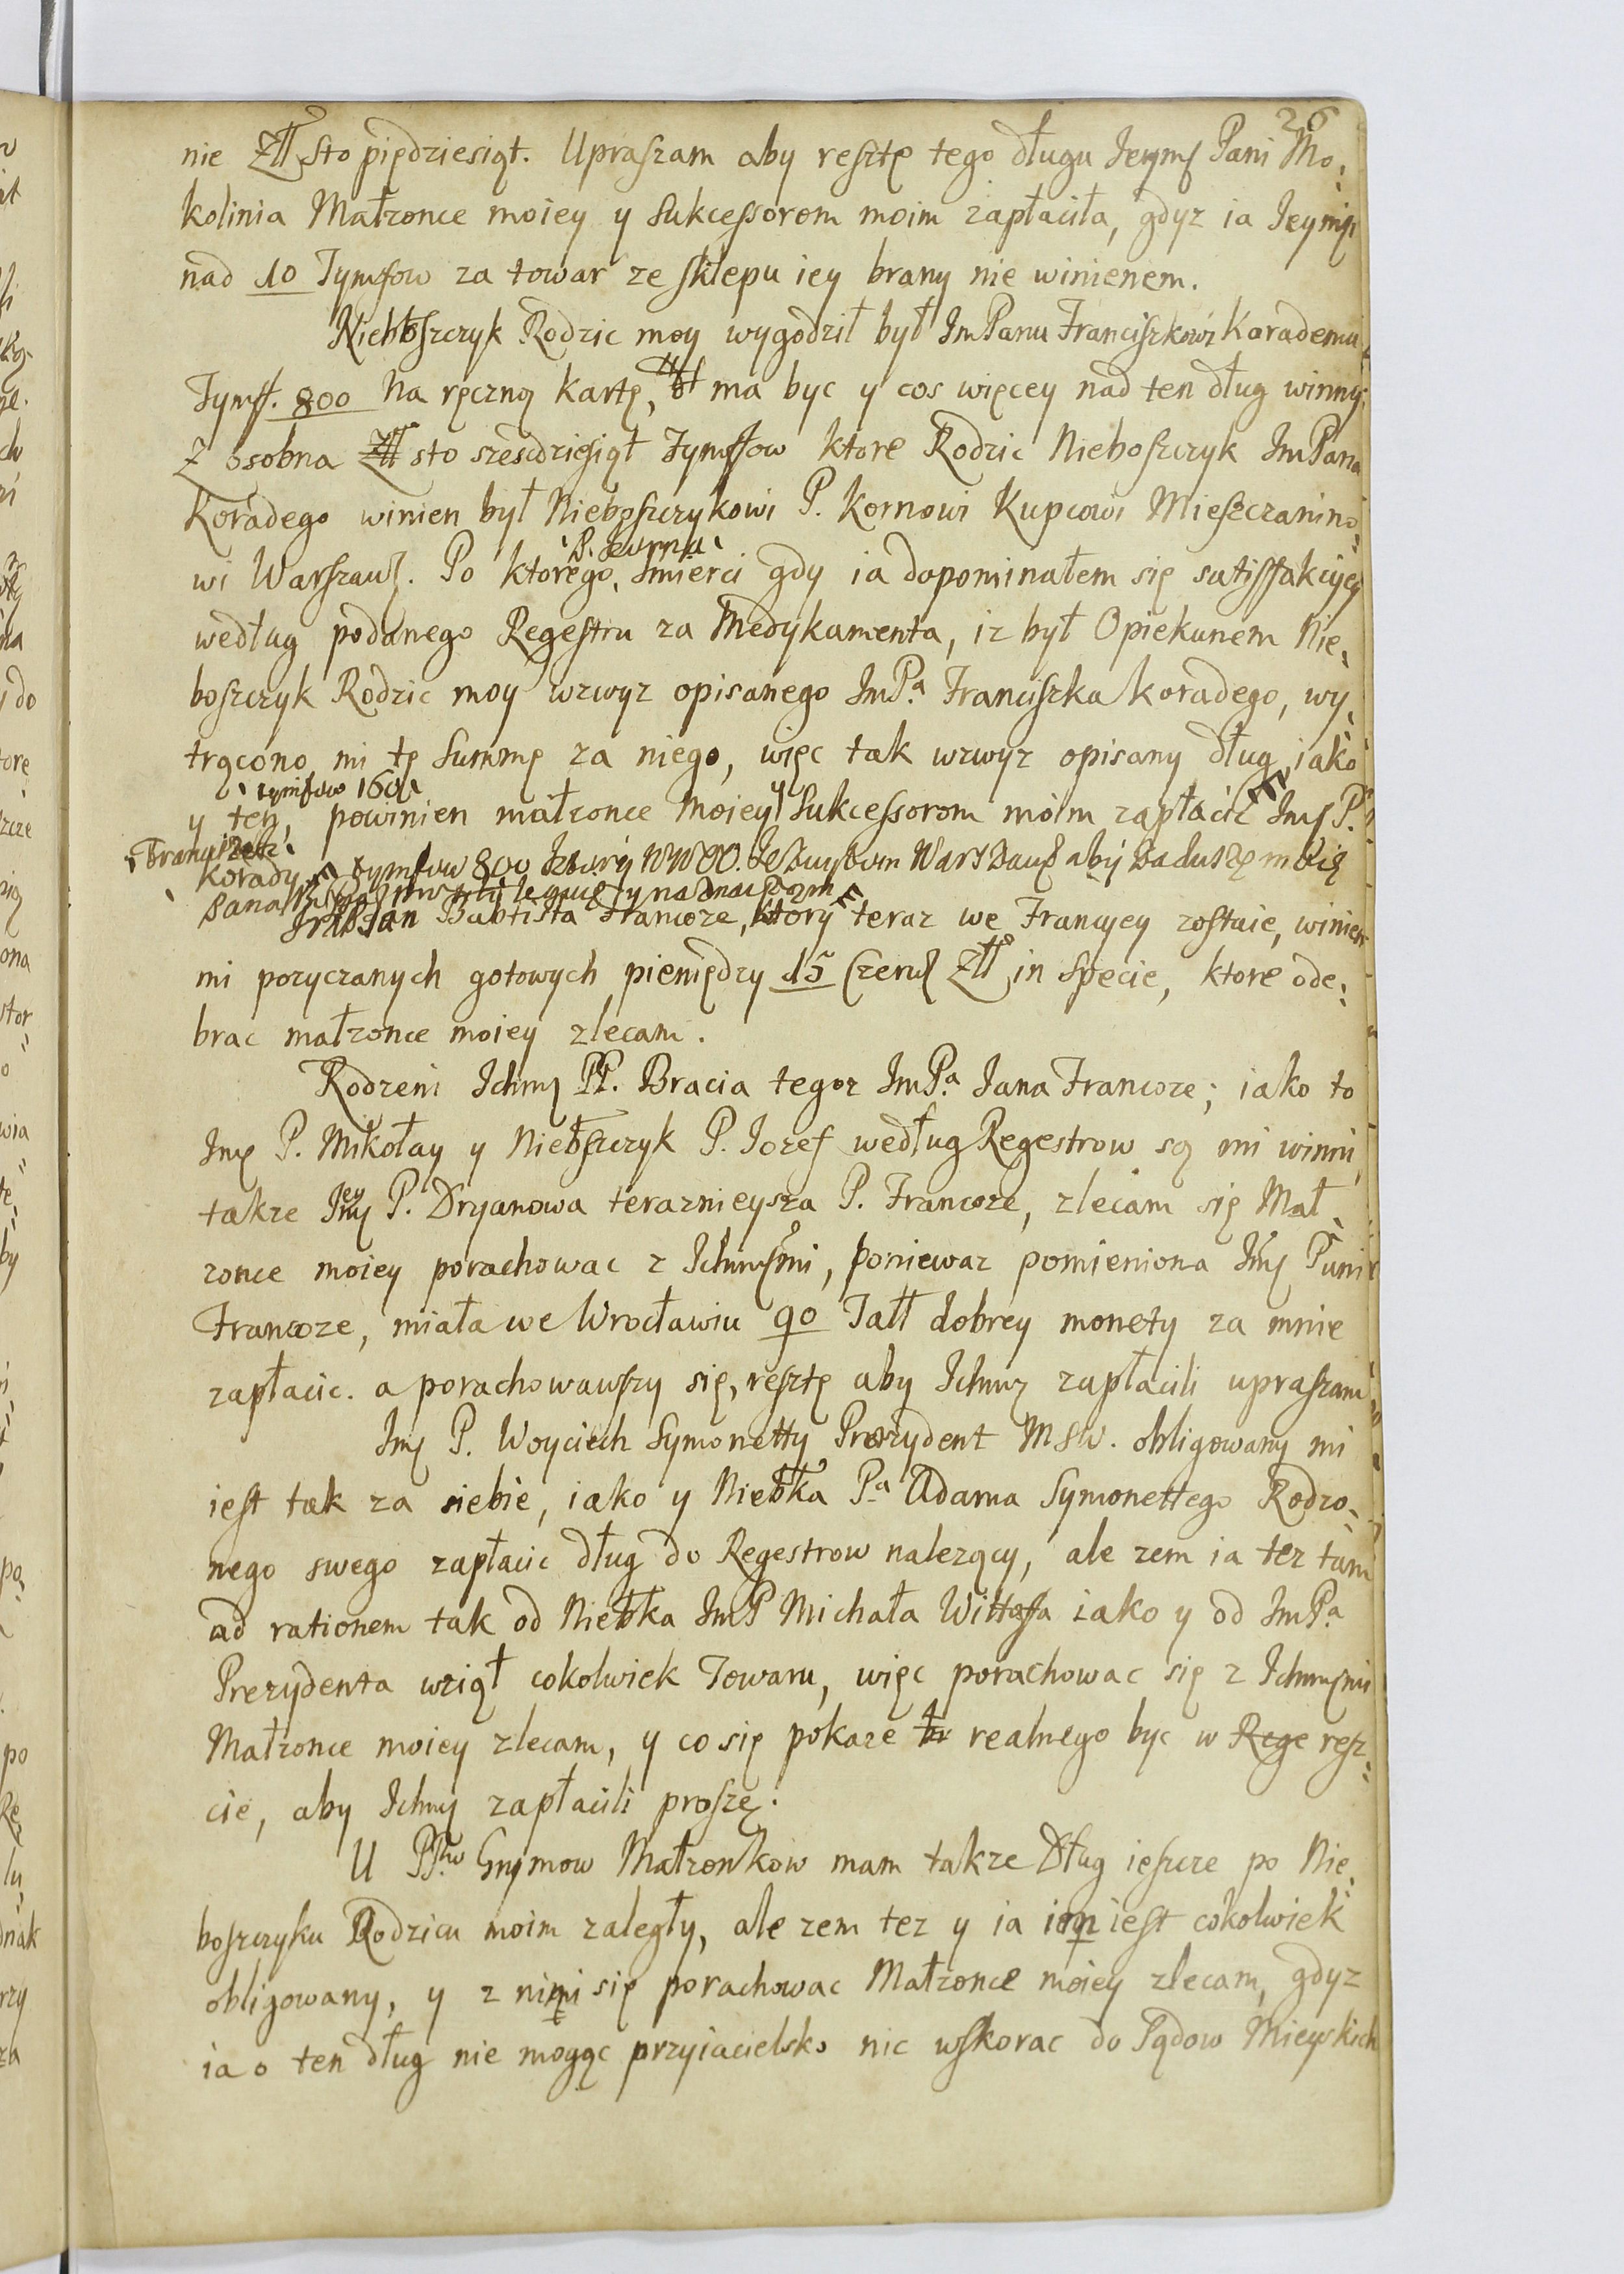 26
nie Złł sto piędziesiąt. Upraszam aby resztę tego długu Ieyms Pani Mo,
kolinia Małzonce moiey y Sukcessorom moim zapłaciła, gdyz ia Ieyms
nad 10 Tymfow za towar ze sklepu iey brany nie winienem.
Niebłszczyk Rodzic moy wygodził był ImPanu Franciszkowi Korademu
Tymff. 800 Na ręczną kartę, ma byc y cos więcey nad ten dług winny
Z osobna Złł sto szescdziesiąt Tymffow ktore Rodzic Nieboszczyk ImPana
Koradego winien był Nieboszczykowi P. Kornowi Kupcowi Mieszczanino,
P. Korna
wi Warszaws. Po ktorego, smierci gdy ia dopominałem się satisfakcyey
według podanego Regestru za Medykamenta, iz był Opiekunem Nie,
boszczyk Rodzic moy wzwyz opisanego ImPa Franciszka Koradego, wy,
trącono mi tę Summę za niego, więc tak wzwyz opisany dług, iako
tymfow 160
y ten, powinien małzonce moiey y Sukcessorom moim zapłacic Ims P.
Franciszek
Korady tymfow 800 ktory WWOO. Warszaws aby za duszę moię
Pana
Jan Babtista Francoze, ktory teraz we Francyey zostaie, winien
mi pozyczanych gotowych pieniędzy 15 Czerws Złł in specie, ktore ode,
brac małzonce moiey zlecam.
Rodzeni Ichms PP. Bracia tegoz ImPa Iana Francoze; iako to
Ims P. Mikołay y Niebłszczyk P. Iozef według Regestrow są mi winni,
takze Ieyms P. Dryanowa teraznieysza P. Francoze, zlecam się Mał,
zonce moiey porachowac z Ichmsmi, poniewaz pomieniona Ims Pani
Francoze, miała we Wrocławiu 90 Tall dobrey monety za mnie
zapłacic. a porachowawszy się, resztę aby Ichms zapłacili upraszam
Ims P. Woyciech Symonetty Prezydent MSW. obligowany mi
iest tak za siebie, iako y Niebłka Pa Adama Symonettego Rodzo-
nego swego zapłacic dług do Regestrow nalezący, ale zem ia tez tam
ad rationem tak od Niebłka ImP Michała Wittoffa iako y od ImPa
Prezydenta wziął cokolwiek Towaru, więc porachowac się z Ichmsmi
Małzonce moiey zlecam, y co się pokaze realnego byc w Rege resz,
cie, aby Ichms zapłacili proszę.
U PPtw Gnymow Małzonkow mam takze Dług ieszcze po Nie,
boszczyku Rodzicu moim zaległy, ale zem tez y ia im iest cokolwiek
obligowany, y z nimi się porachowac Małzonce moiey zlecam, gdyz
ia o ten dług nie mogąc przyiacielsko nic wskorac do Sądow Mieyskich